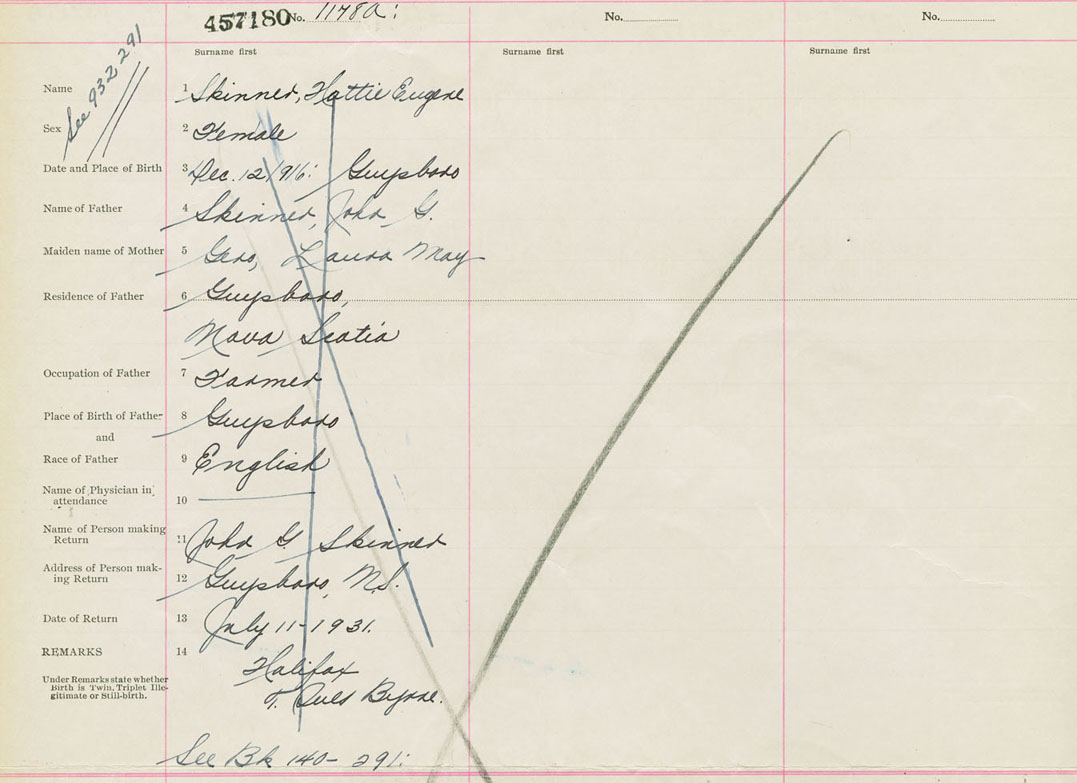 457180 No. 1178a: No. No.
See 932291
Surname first Surname first Surname first
Name 1 Skinner, Hattie Eugene
Sex 2 Female
Date and Place of Birth 3 Dec. 12/916: Guysboro
Name of Father 4 Skinner, John G.
Maiden name of Mother 5 Laura May
Residence of Father 6 Guysboro,
Nova Scotia
Occupation of Father 7 Farmer
Place of Birth of Father 8 Guysboro
and
Race of Father 9 English
Name of Physician in
attendance 10
Name of Person making
Return 11 John G. Skinner
Address of Person mak-
ing Return 12 Guysboro, N.S.
Date of Return 13 July 11-1931.
REMARKS 14
Halifax
Under Remarks state whether
Birth is Twin, Triplet Ille-
gitimate or Still-birth.
T. Ives Byrne.
See Bk 140- 291: